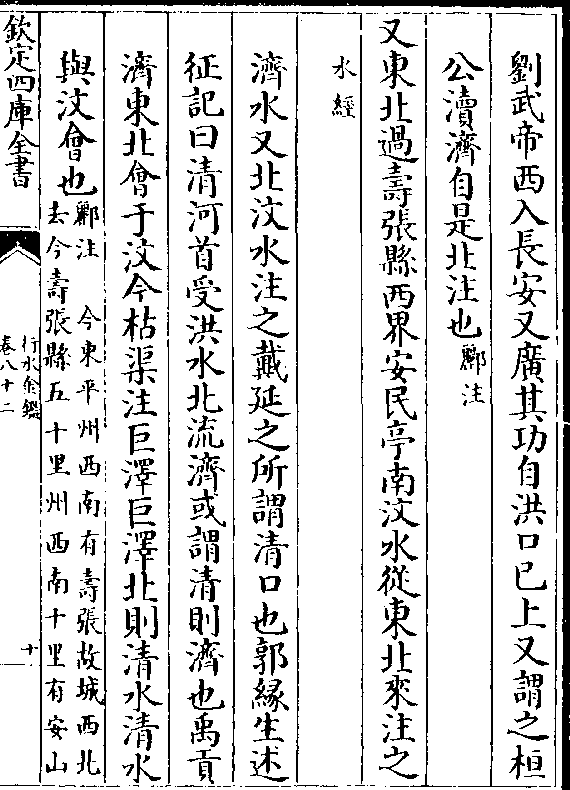 劉武帝西入長安又廣其功自洪口已上又謂之桓
公瀆濟自是北注也酈注
又東北過壽張縣西界安民亭南汶水從東北來注之
水經
濟水又北汶水注之戴延之所謂清口也郭緣生述
征記曰清河首受洪水北流濟或謂清則濟也禹貢
濟東北會于汶今枯渠注巨澤巨澤北則清水清水
與汶會也酈注 今東平州西南有壽張故城西北
去今壽張縣五十里州西南十里有安山
欽定四庫全書
行水金鑑
卷八十二
十